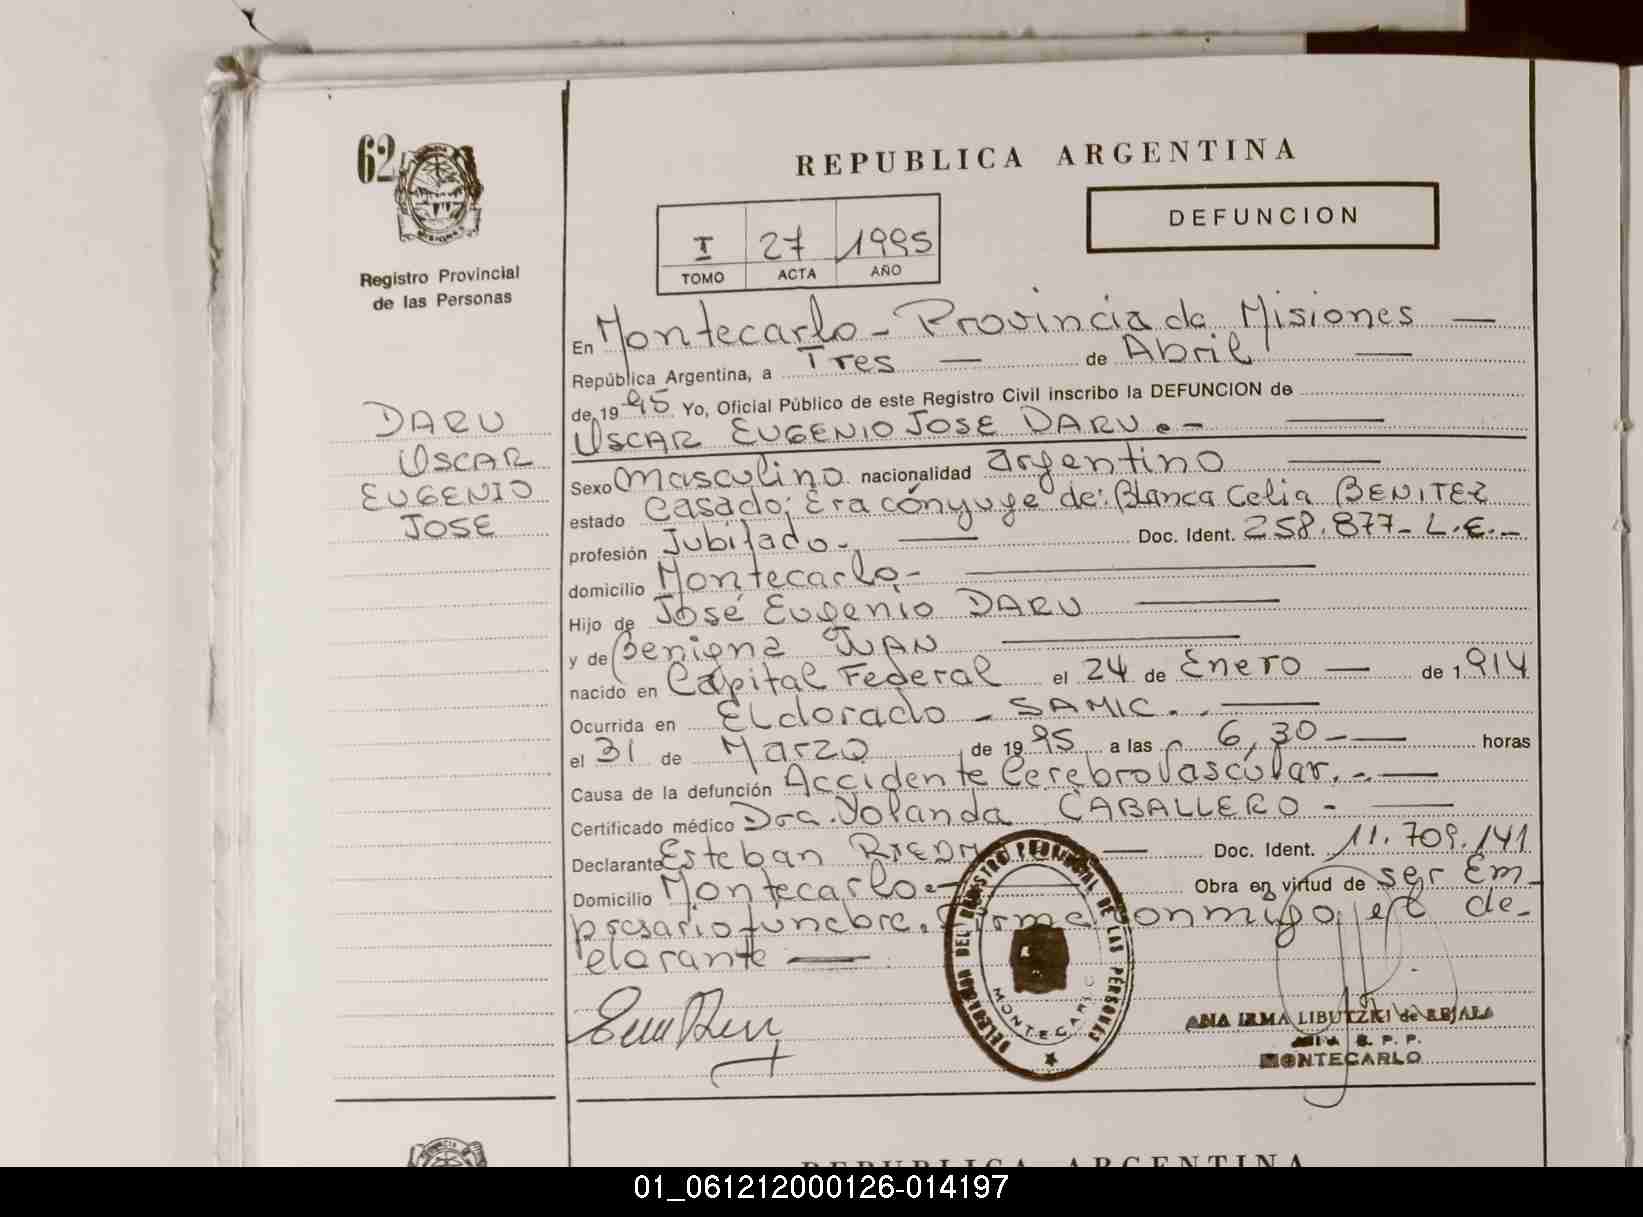 62
REPUBLICA ARGENTINA
DEFUNCION
I 27 1995
TOMO ACTA AÑO
Registro Provincial
de las Personas
DARU
OSCAR
EUGENIO
JOSE
En Montecarlo - Provincia de Misiones —
República Argentina, a Tres — de Abril —
de 1995 Yo, Oficial Público de este Registro Civil inscribo la DEFUNCION de
OSCAR EUGENIO JOSE DARU.- —
Sexo Masculino nacionalidad argentino —
estado Casado; Era cónyuge de: Blanca Celia BENITEZ
profesión Jubilado.- — Doc. Ident. 258.877- L.E.-
domicilio Montecarlo.- —
Hijo de José Eugenio DARU —
y de Benigna JUAN —
nacido en Capital Federal el 24 de Enero — de 1.914
Ocurrida en Eldorado - SAMIC. . —
el 31 de Marzo de 1995 a las 6,30 - — horas
Causa de la defunción Accidente Cerebro Vascular.- —
Certificado médico Dra. Yolanda CABALLERO - —
Declarante Esteban — Doc. Ident. 11.709.141
Domicilio Montecarlo.- — Obra en virtud de ser Em-
presario funebre. Firma conmigo, el de-
clarante —
DELEGACION DEL REGISTRO PROVINCIAL DE LAS PERSONAS
MONTECARLO
ANA IRMA LIBUTZKI de
R. P. P.
MONTECARLO
REPUBLICA ARGENTINA
01_061212000126-014197